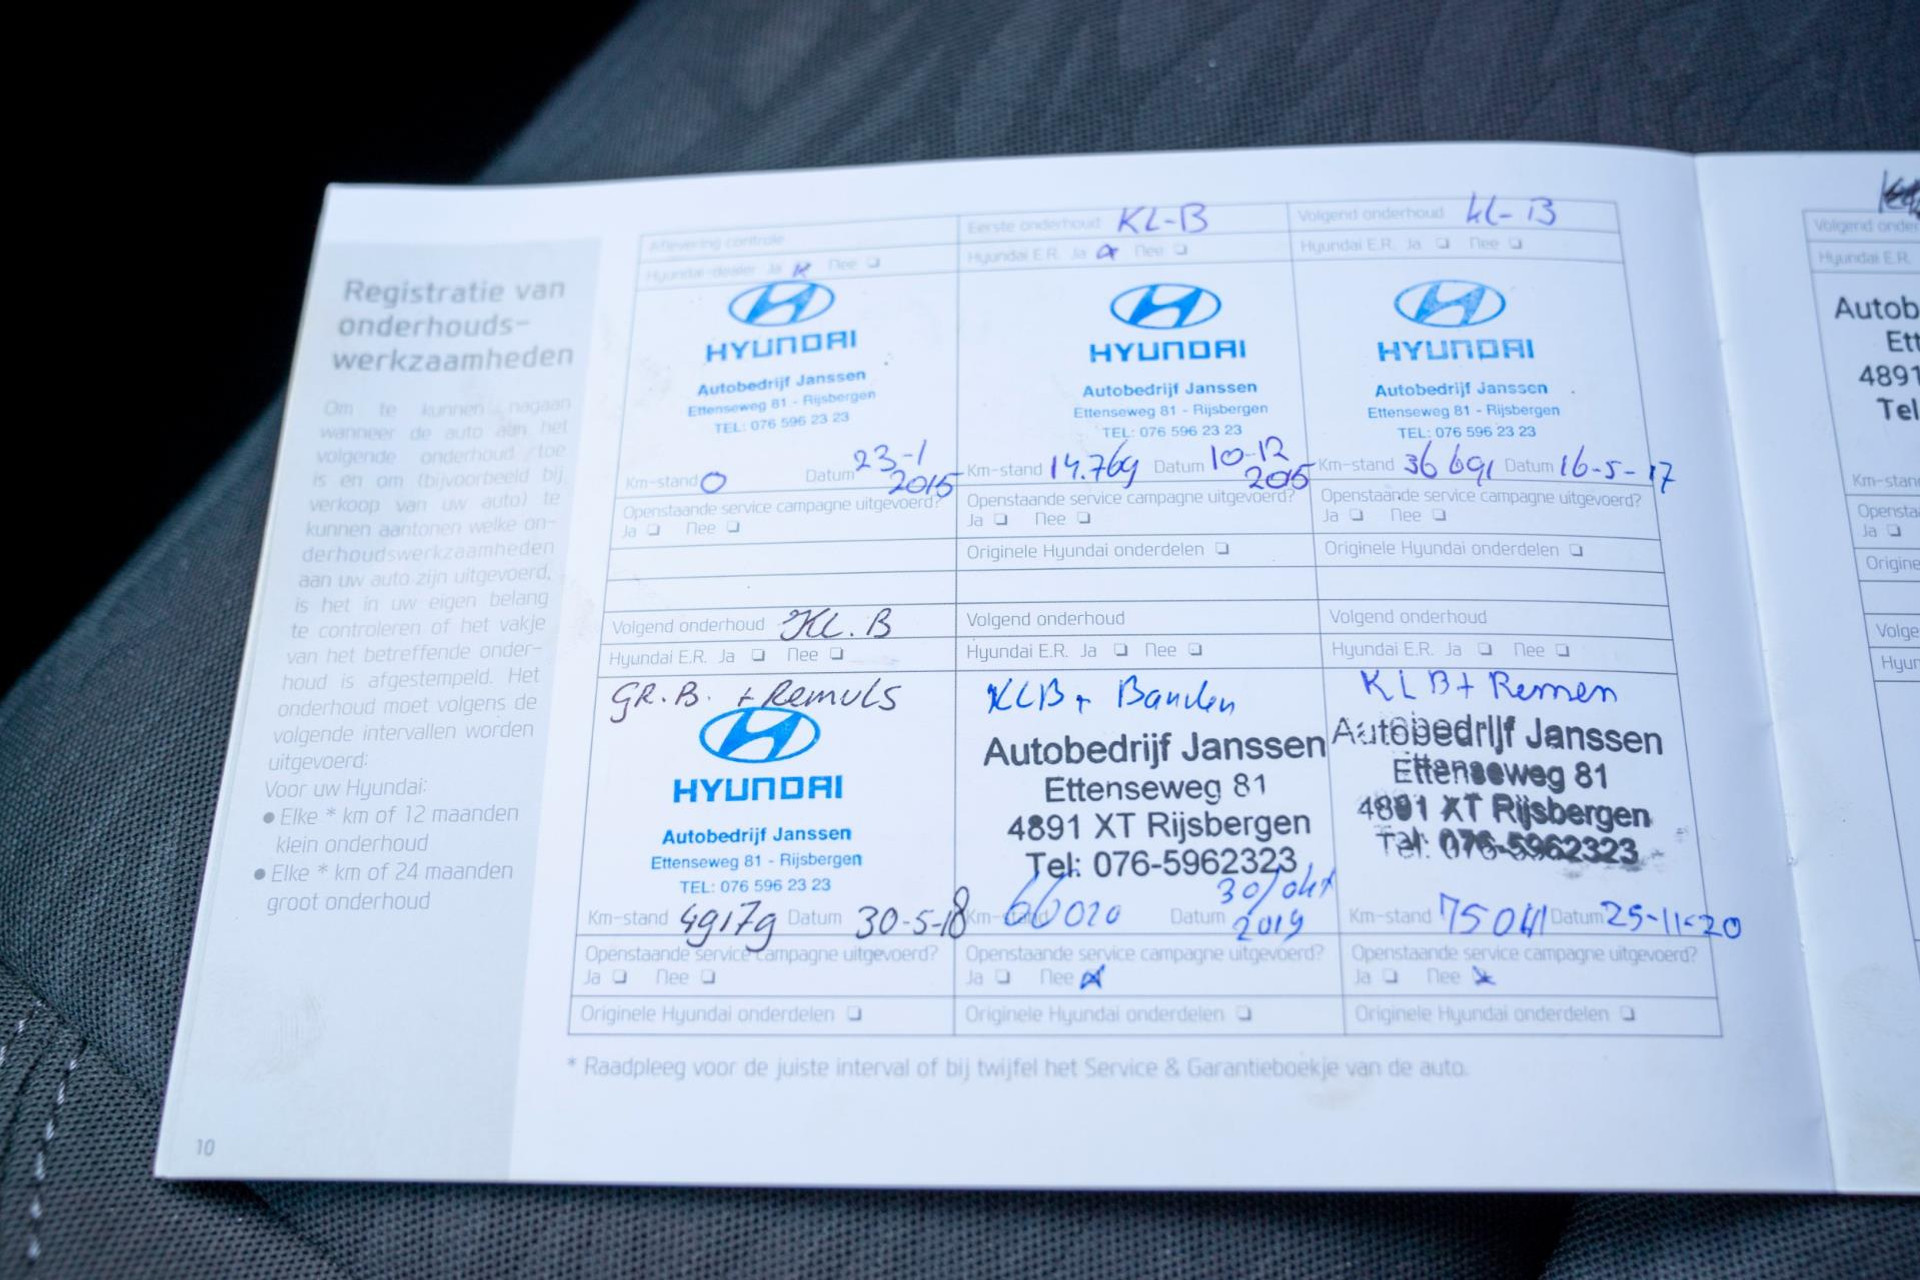 Registratie van
onderhouds-
werkzaamheden
Om te kunnen nagaan
wanneer de auto aan het
volgende onderhoud toe
is en om (bijvoorbeeld bij
verkoop van uw auto) te
kunnen aantonen welke on-
derhoudswerkzaamheden
aan uw auto zijn uitgevoerd,
is het in uw eigen belang
te controleren of het vakje
van het betreffende onder-
houd is afgestempeld. Het
onderhoud moet volgens de
volgende intervallen worden
uitgevoerd:
Voor uw Hyundai:
● Elke * km of 12 maanden
klein onderhoud
● Elke * km of 24 maanden
groot onderhoud
10
Aflevering controle
Hyundai-dealer Ja Nee
HYUNDAI
Autobedrijf Janssen
Ettenseweg 81 - Rijsbergen
TEL: 076 596 23 23
Km-stand 0 Datum 23-1
2015
Openstaande service campagne uitgevoerd?
Ja Nee
Eerste onderhoud KL-B
Hyundai E.R. Ja Nee
HYUNDAI
Autobedrijf Janssen
Ettenseweg 81 - Rijsbergen
TEL: 076 596 23 23
Km-stand 14.769 Datum 10-12
2015
Openstaande service campagne uitgevoerd?
Ja Nee
Originele Hyundai onderdelen
Volgend onderhoud KL-B
Hyundai E.R. Ja Nee
HYUNDAI
Autobedrijf Janssen
Ettenseweg 81 - Rijsbergen
TEL: 076 596 23 23
Km-stand 36691 Datum 16-5-17
Openstaande service campagne uitgevoerd?
Ja Nee
Originele Hyundai onderdelen
Volgend onderhoud KL.B
Hyundai E.R. Ja Nee
GR.B. + Remvls
HYUNDAI
Autobedrijf Janssen
Ettenseweg 81 - Rijsbergen
TEL: 076 596 23 23
Km-stand 49179 Datum 30-5-18
Openstaande service campagne uitgevoerd?
Ja Nee
Originele Hyundai onderdelen
Volgend onderhoud
Hyundai E.R. Ja Nee
KLB + Banden
Autobedrijf Janssen
Ettenseweg 81
4891 XT Rijsbergen
Tel: 076-5962323
Km-stand 66020 Datum 30/okt
2019
Openstaande service campagne uitgevoerd?
Ja Nee
Originele Hyundai onderdelen
Volgend onderhoud
Hyundai E.R. Ja Nee
KLB + Remmen
Autobedrijf Janssen
Ettenseweg 81
4891 XT Rijsbergen
Tel: 076-5962323
Km-stand 75041 Datum 25-11-20
Openstaande service campagne uitgevoerd?
Ja Nee
Originele Hyundai onderdelen
* Raadpleeg voor de juiste interval of bij twijfel het Service & Garantieboekje van de auto.
Volgend onder
Hyundai E.R.
Autob
Ett
4891
Tel
Km-stan
Opensta
Ja
Origine
Volge
Hyun